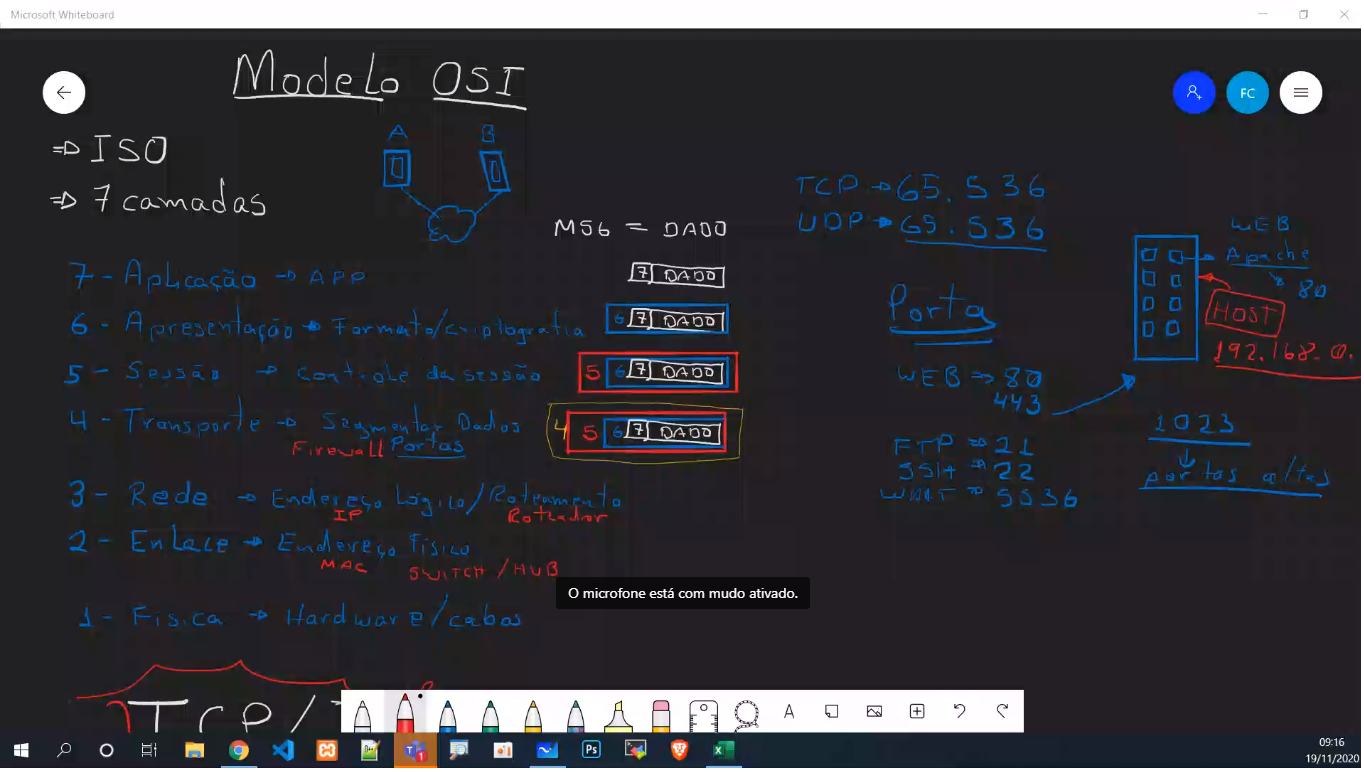 Microsoft Whiteboard
Modelo OSI
FC
⇒ ISO
⇒ 7 camadas
A B
MSG = DADO
7 DADO
6 7 DADO
5 6 7 DADO
4 5 6 7 DADO
7 - Aplicação → APP
6 - Apresentação → Formato/criptografia
5 - Sessão → Controle da sessão
4 - Transporte → Segmentar Dados
Firewall Portas
3 - Rede → Endereço Lógico/Roteamento
IP Roteador
2 - Enlace → Endereço Físico
MAC SWITCH/HUB
1 - Física → Hardware/cabos
TCP/
TCP → 65.536
UDP → 65.536
Porta
WEB ⇒ 80
443
FTP ⇒ 21
SSH ⇒ 22
⇒ 5536
WEB
Apache
80
HOST
192.168.0.
1023
portas altas
O microfone está com mudo ativado.
A
Ps
09:16
19/11/2020